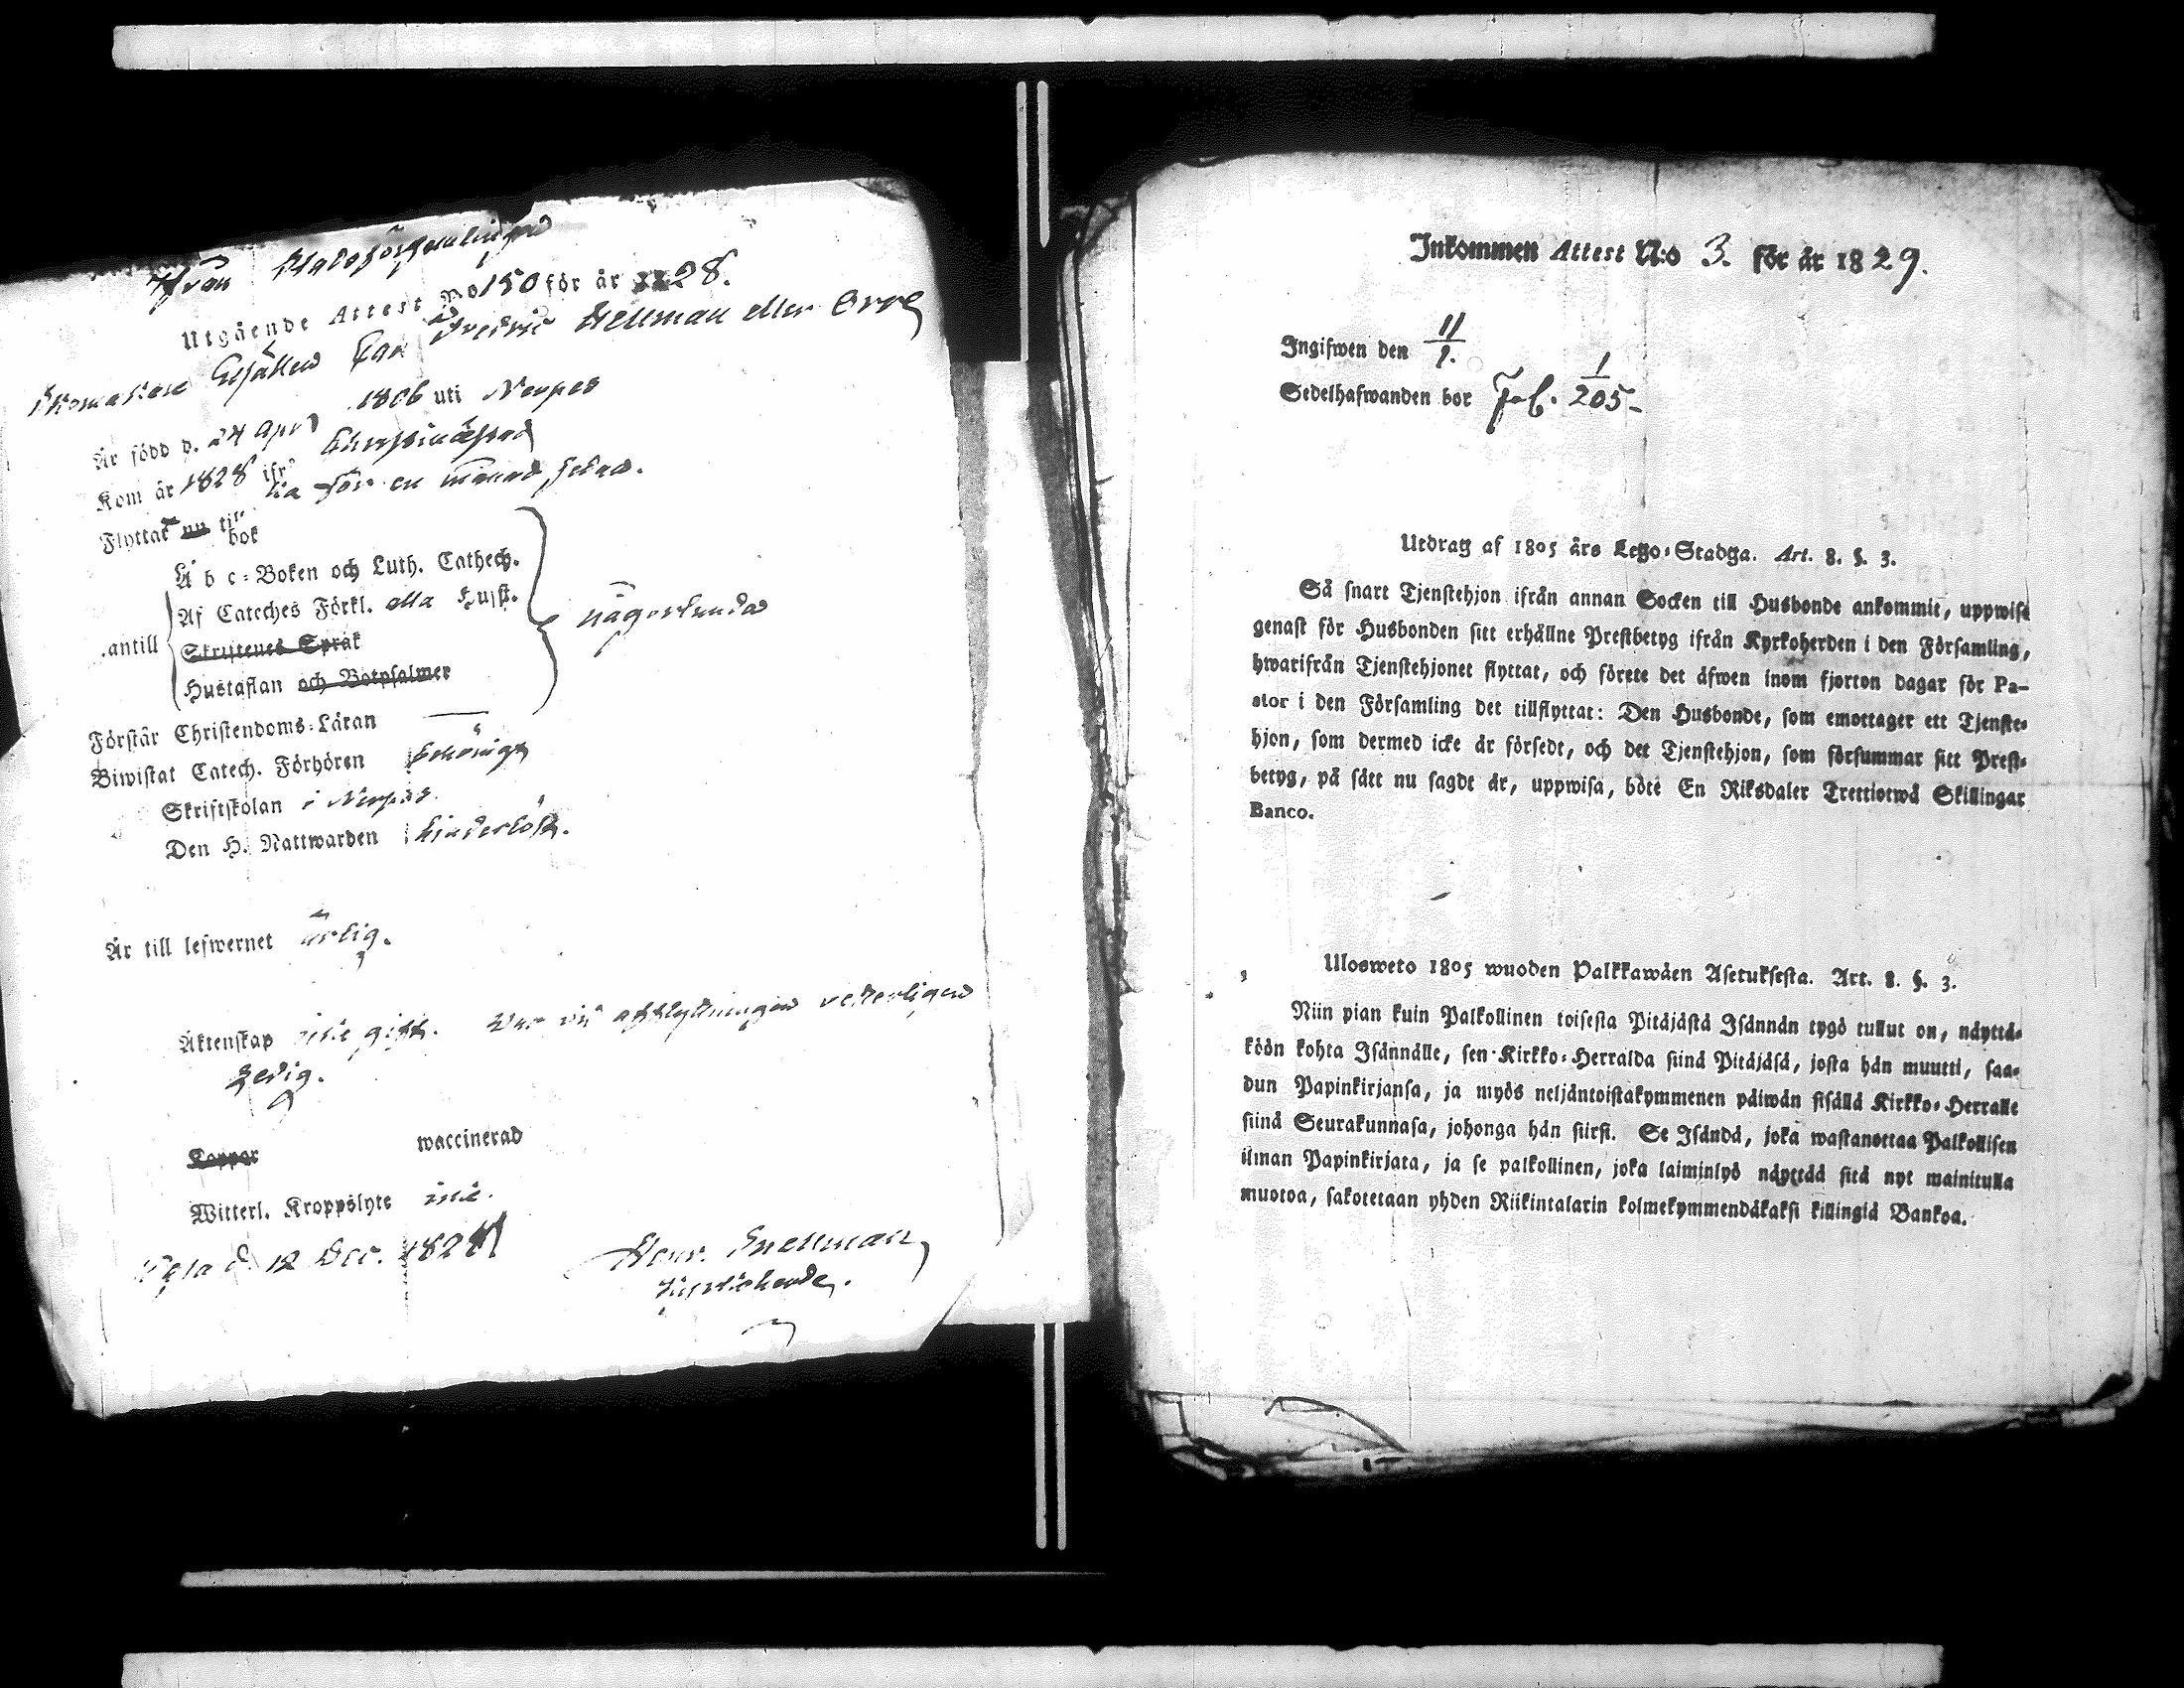 Ifrån Stadsförsamlingen
Utgående Attest No 150 för år 1828.
Skomakare Gesällen Carl Fredric Hellman eller Orre
Är född d. 24 Apr 1806 uti Nerpes
Kom år 1828 ifr. Christinæstad
Flyttat nu till för en månad sedan.
bok
A b c-Boken och Luth. Cathech.
Af Cateches Förkl. alla Hufst.
någorlunda
.antill Skriftenes Språk
Hustaflan och Botpsalmer
Förstår Christendoms-Läran —
Biwistat Catech. Förhören behörigt
Skriftskolan i Nerpes.
Den H. Nattwarden hinderlöst.
Är till lefwernet ärlig.
Äktenskap icke gift. War vid afflyttningen vederligen
Ledig.
Koppor waccinerad
Witterl. Kroppslyte icke.
Wasa d. 12 Dec. 1828
Henr. Snellman
Kyrkoherde.
Inkommen Attest N:o 3. för år 1829.
Ingifwen den 11/1.
Sedelhafwanden bor Fol. 1/205
Utdrag af 1805 års Lego-Stadga. Art. 8. §. 3.
Så snart Tjenstehjon ifrån annan Socken till Husbonde ankommit, uppwise
genast för Husbonden sitt erhållne Prestbetyg ifrån Kyrkoherden i den Församling,
hwarifrån Tjenstehjonet flyttat, och förete det äfwen inom fjorton dagar för Pa-
stor i den Församling det tillflyttat: Den Husbonde, som emottager ett Tjenste-
hjon, som dermed icke är försedt, och det Tjenstehjon, som försummar sitt Prest-
betyg, på sätt nu sagdt är, uppwisa, böte En Riksdaler Trettiotwå Skillingar
Banco.
Ulosweto 1805 wuoden Palkkawäen Asetuksesta. Art. 8. §. 3.
Niin pian kuin Palkollinen toisesta Pitäjästä Isännän tygö tullut on, näyttä-
köön kohta Isännälle, sen Kirkko-Herralda siinä Pitäjäsä, josta hän muutti, saa-
dun Papinkirjansa, ja myös neljäntoistakymmenen päiwän sisällä Kirkko-Herralle
siinä Seurakunnasa, johonga hän siirsi. Se Isändä, joka wastanottaa Palkollisen
ilman Papinkirjata, ja se palkollinen, joka laiminlyö näyttää sitä nyt mainitulla
muotoa, sakotetaan yhden Riikintalarin kolmekymmendäkaksi killingiä Bankoa.